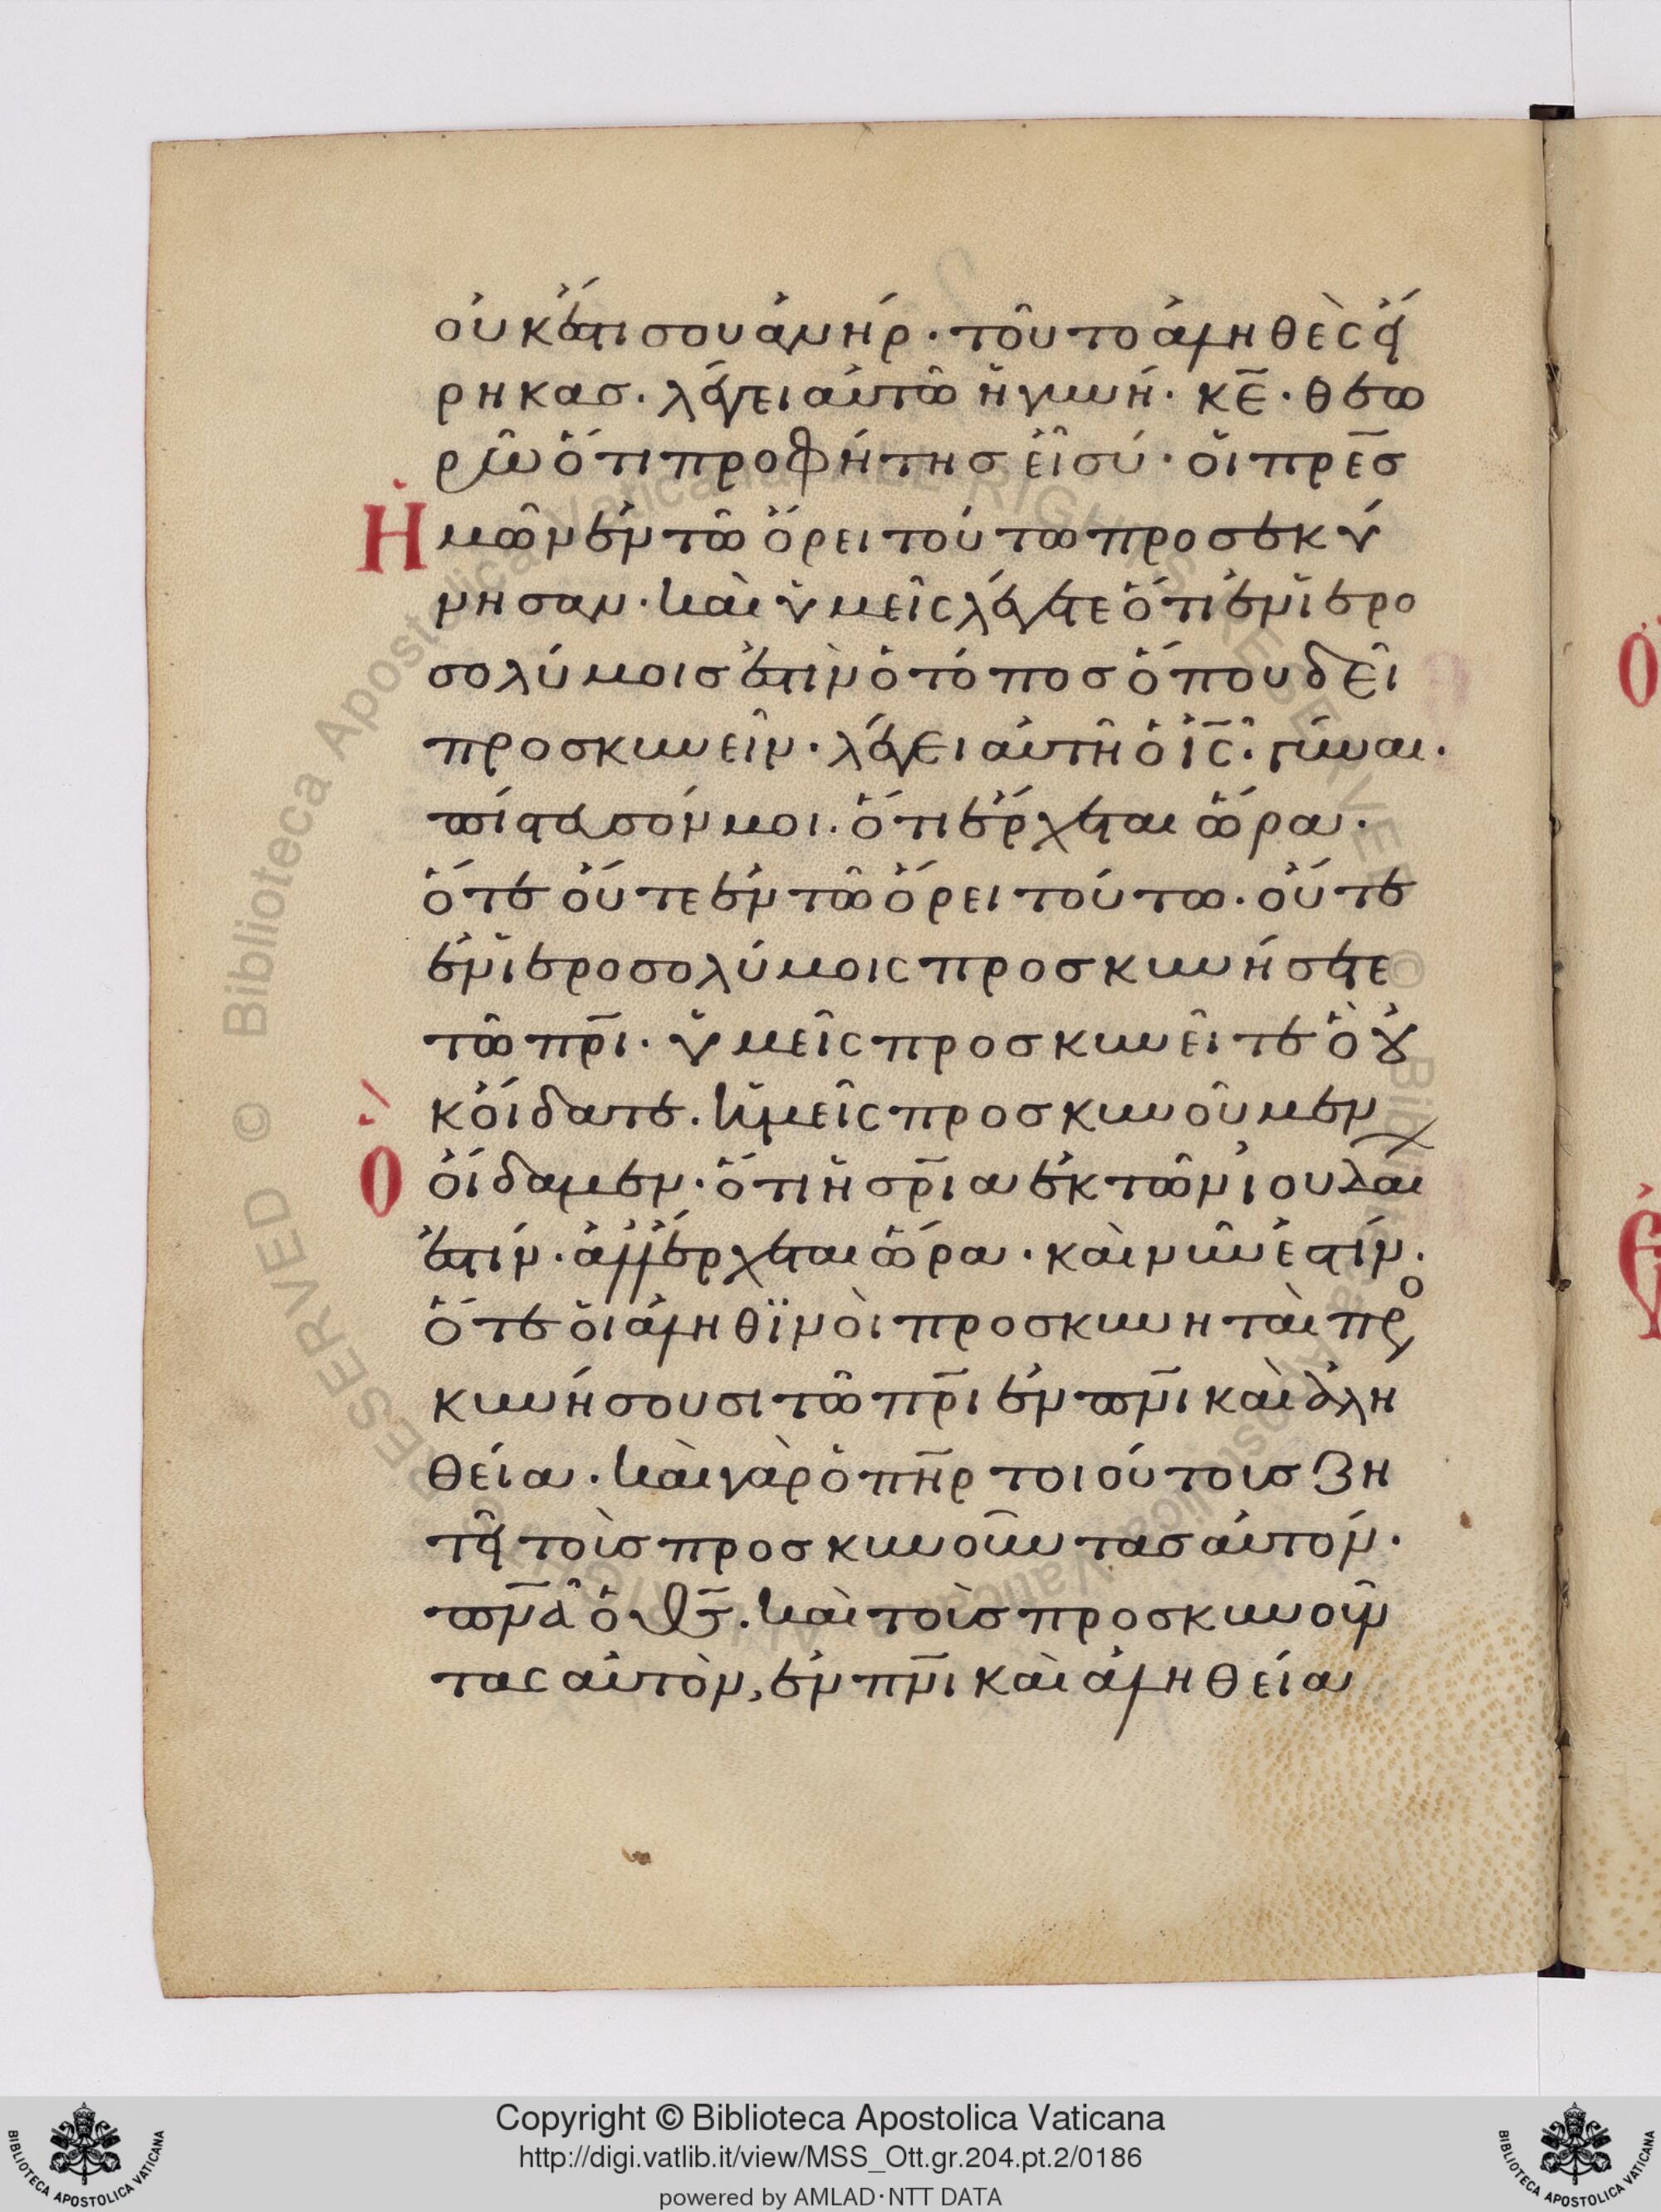 οὐκ ἔστι σου ἀνήρ· τοῦτο ἀληθὲς εἴ
ρηκασ. λέγει αὐτῶ ἡ γυνή· κ̅ε̅· θεω
ρῶ ὅτι προφήτησ εἶ σύ· οἱ πρ̅εσ
Ἡμῶν ἐν τῶ ὄρει τούτω προσεκύ
νησαν· καὶ ὑμεῖς λέγετε ὅτι ἐν ἱερο
σολύμοισ ἐστὶν ὁ τόποσ ὅπου δεῖ
προσκυνεῖν· λέγει αὐτῆ ὁ ι̅ς̅· γύναι·
πίστευσόν μοι. ὅτι ἔρχεται ὥρα·
ὅτε οὔτε ἐν τῶ ὄρει τούτω· οὔτε
ἐν ἱεροσολύμοις προσκυνήσετε
τῶ πρ̅ι· ὑμεῖς προσκυνεῖτε ὃ οὐ
κ οἴδατε. ἡμεῖς προσκυνοῦμεν
Ὃ οἴδαμεν· ὅτι ἡ σρ̅ια ἐκ τῶν ἰουδαί
ἐστίν· ἀλλ ἔρχεται ὥρα· καὶ νῦν ἐστίν·
ὅτε οἱ ἀληθϊνοὶ προσκυνηταὶ προ
κυνήσουσι τῶ πρ̅ι ἐν πν̅ι καὶ ἀλη
θεία· καὶ γὰρ ὁ πη̅ρ τοιούτουσ ζη
τεῖ τοὺσ προσκυνοῦντασ αὐτόν·
πν̅α ὁ θ̅ς̅. καὶ τοὺσ προσκυνοῦν
τας αὐτὸν, ἐν πν̅ι καὶ ἀληθεία
Copyright © Biblioteca Apostolica Vaticana
http://digi.vatlib.it/view/MSS_Ott.gr.204.pt.2/0186
powered by AMLAD·NTT DATA
BIBLIOTECA APOSTOLICA VATICANA
BIBLIOTECA APOSTOLICA VATICANA